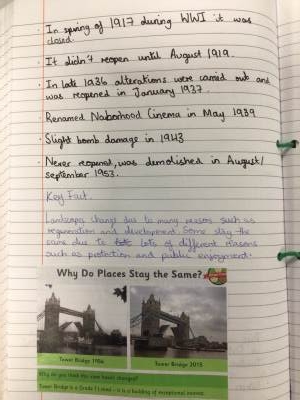 · In spring of 1917 during WWI it was
closed.
· It didn't reopen until August 1919.
· In late 1936 alterations were carried out and
was reopened in January 1937.
· Renamed Naborhood Cinema in May 1939
· Slight bomb damage in 1943
· Never reopened, was demolished in August/
september 1953.
Key Fact.
Landscapes change due to many reasons such as
regeneration and development. Some stay the
same due to lots of different reasons
such as protection and public enjoyment.
Why Do Places Stay the Same?
Tower Bridge 1986
Tower Bridge 2015
Why do you think the view hasn't changed?
Tower Bridge is a Grade I Listed – it is a building of exceptional interest.